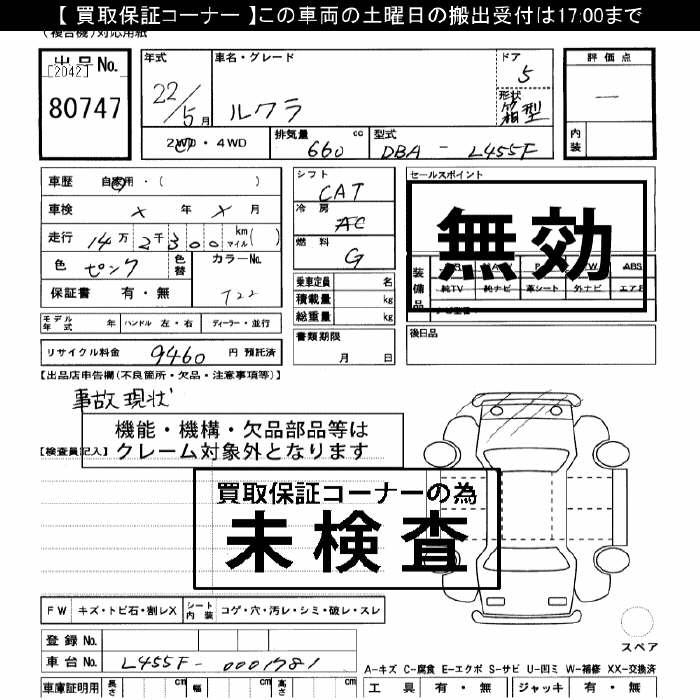 【 買取保証コーナー 】この車両の土曜日の搬出受付は17:00まで
(複合機)対応用紙
出品No.
[2042]
80747
年式
22/5月
車名・グレード
ルクラ
ドア
5
形状
箱型
評価点
—
内装
2WD・4WD
排気量 660 cc
型式 DBA - L455F
車歴 自家用・( )
車検 × 年 ×月
走行 14万2千300 km マイル( )
色 ピンク 色替
カラーNo.
T22
保証書 有・無
シフト
CAT
冷房
AC
燃料
G
乗車定員 名
積載量 kg
総重量 kg
セールスポイント
無効
装備品
ABS
純TV 純ナビ 革シート 外ナビ エアB
モデル年式 年 ハンドル 左・右 ディーラー・並行
書類期限
月 日
後日品
リサイクル料金 9460 円 預託済
【出品店申告欄(不良箇所・欠品・注意事項等)】
事故現状
機能・機構・欠品部品等は
クレーム対象外となります
【検査員記入】
買取保証コーナーの為
未検査
FW キズ・トビ石・割レX シート内装 コゲ・穴・汚レ・シミ・破レ・スレ
登録No.
車台No. L455F-0001781
スペア
A-キズ C-腐食 E-エクボ S-サビ U-凹ミ W-補修 XX-交換済
車庫証明用 長さ cm 幅 cm 高さ cm
工具 有・無 ジャッキ 有・無